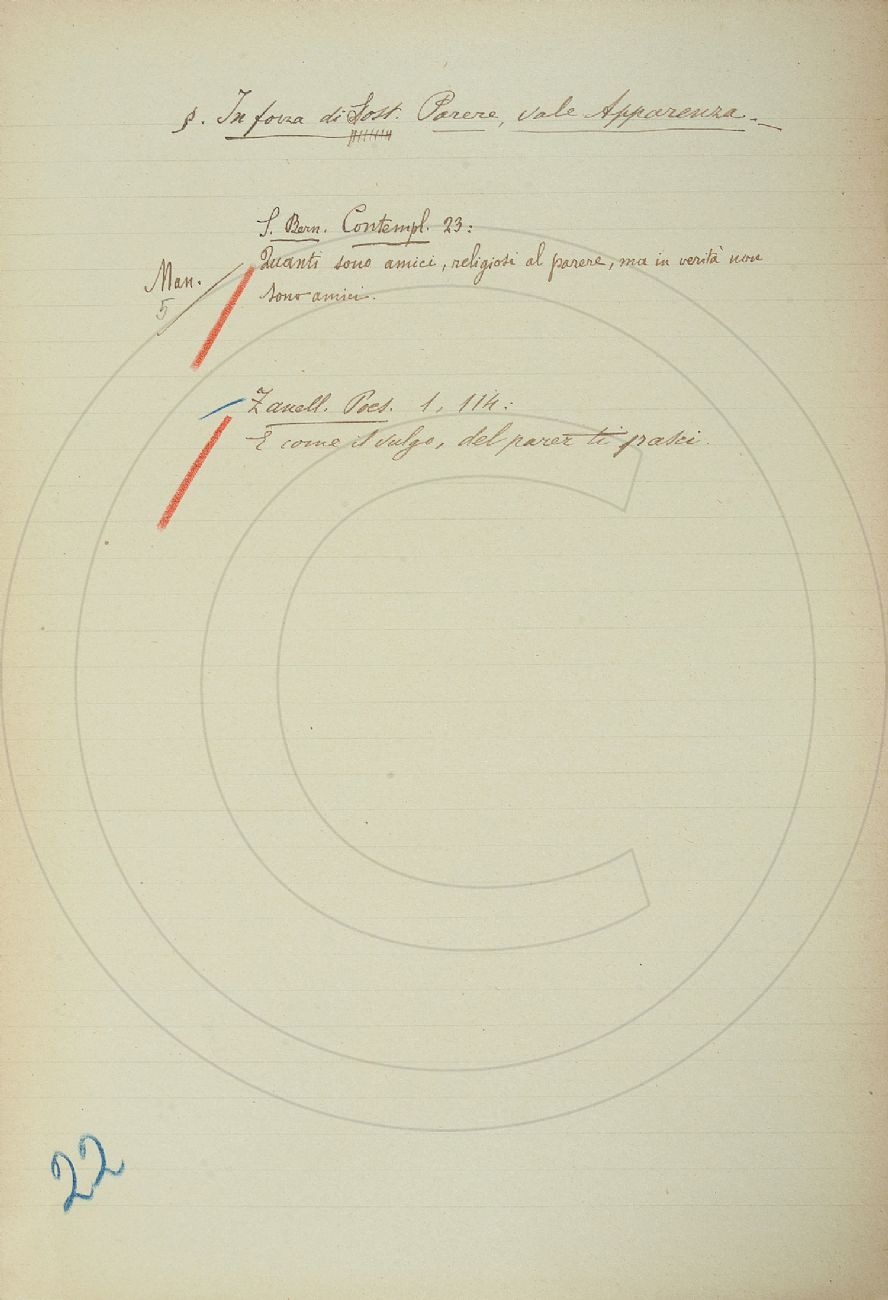 §. In forza di Sost. Parere, vale Apparenza. —
S. Bern. Contempl. 23:
Quanti sono amici, religiosi al parere, ma in verità non
sono amici.
Man.
5
Zanell. Poes. 1, 114:
E come il vulgo, del parer ti pasci.
22